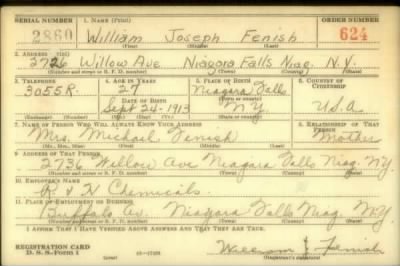 SERIAL NUMBER 1. NAME (Print) ORDER NUMBER
2860 William Joseph Fenish 624
(First) (Middle) (Last)
2. ADDRESS (Print)
2726 Willow Ave Niagara Falls Niag. N.Y.
(Number and street or R. F. D. number) (Town) (County) (State)
3. TELEPHONE 4. AGE IN YEARS 5. PLACE OF BIRTH 6. COUNTRY OF CITIZENSHIP
3055R. 27 Niagara Falls
(Town or county)
DATE OF BIRTH
Sept 24-1913 N.Y U.S.A
(Exchange) (Number) (Mo.) (Day) (Yr.) (State or country)
7. NAME OF PERSON WHO WILL ALWAYS KNOW YOUR ADDRESS 8. RELATIONSHIP OF THAT PERSON
Mrs. Michael Fenish Mother
(Mr., Mrs., Miss) (First) (Middle) (Last)
9. ADDRESS OF THAT PERSON
2736 Willow Ave Niagara Falls Niag. NY
(Number and street or R. F. D. number) (Town) (County) (State)
10. EMPLOYER'S NAME
R & H Chemicals.
11. PLACE OF EMPLOYMENT OR BUSINESS
Buffalo av Niagara Falls Niag NY.
(Number and street or R. F. D. number) (Town) (County) (State)
I AFFIRM THAT I HAVE VERIFIED ABOVE ANSWERS AND THAT THEY ARE TRUE.
REGISTRATION CARD
D. S. S. Form 1 William J Fenish
(over) (Registrant's signature)